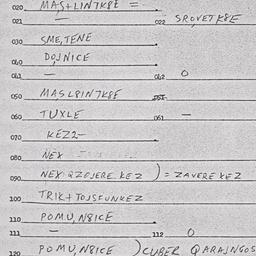 020 MAS+LIN7K8E =
021 — 022 SROVET K8E
030 SME,TENE
040 DOJNICE
041 — 042 O
050 MASL8IN7K8E 051
060 TUXLE 061 —
070 KEZ2-
080 NEX
090 NEX QZEJERE KEZ ) = ZAVERE KEZ
100 TRIK+TOJSFUNKEZ
110 POMU,N8ICE
111 — 112 O
120 POMU,N8ICE ) CUBER QARAJNGOS